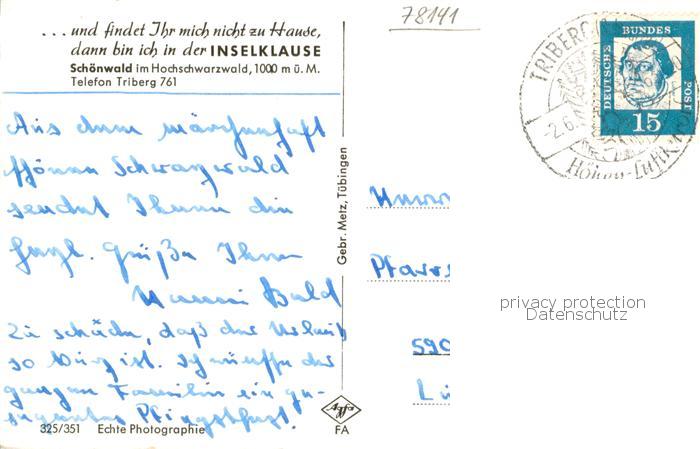 78141
... und findet Ihr mich nicht zu Hause,
dann bin ich in der INSELKLAUSE
Schönwald im Hochschwarzwald, 1000 m ü. M.
Telefon Triberg 761
TRIBERG
2.6.
Höhen-Luftkurort
DEUTSCHE BUNDES POST
15
Aus dem märchenhaft
schönen Schwarzwald
sendet Ihnen die
herzl. Grüße Ihre
Bald
Zu schade, daß der Urlaub
so kurz ist. Ich wünsche der
ganzen Familie ein ge-
segnetes Pfingstfest.
Gebr. Metz, Tübingen
590
privacy protection
Datenschutz
325/351 Echte Photographie
Agfa
FA